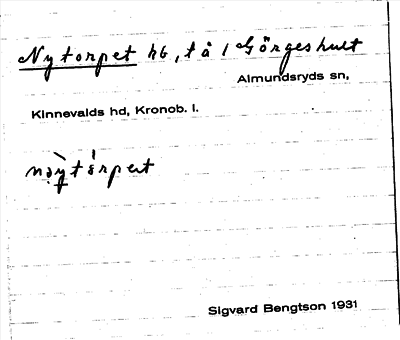 Nytorpet hb, tå 1 Görgeshult
Almundsryds sn,
Kinnevalds hd, Kronob. l.
Sigvard Bengtson 1931